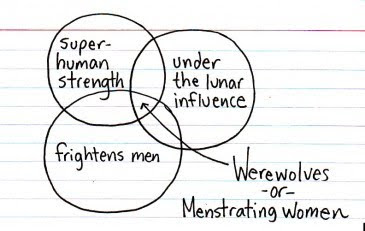 super-
human
strength
under
the lunar
influence
frightens men
Werewolves
-or-
Menstrating Women